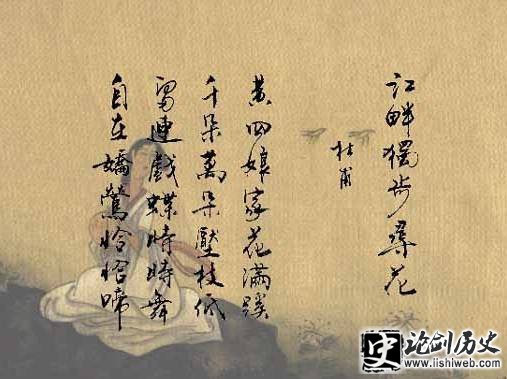 江畔獨步尋花
杜甫
黃四娘家花滿蹊
千朵萬朵壓枝低
留連戲蝶時時舞
自在嬌鶯恰恰啼
史 论剑历史
www.lishiweb.com